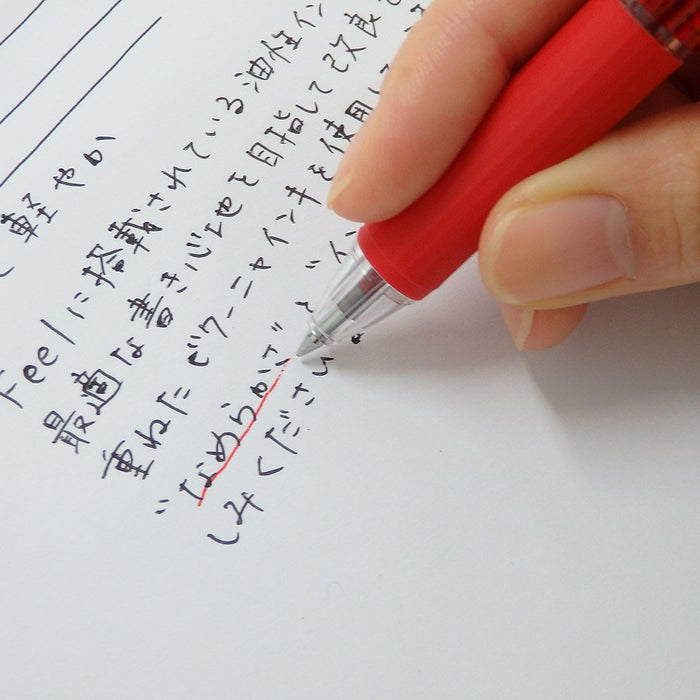 軽やか
Feelに搭載されている油性イン
最適な書き心地を目指して改良を
重ねたビクーニャインキを使用し
"なめらかさ"と"イ
しみください